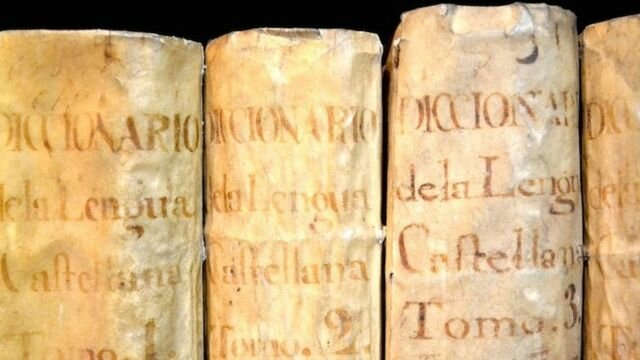 DICCIONARIO
dela Lengua
Castellana
Tomo. 1.
DICCIONARIO
dela Lengua
Castellana
Tomo. 2.
DICCIONAR
dela Lengu
Castellana
Tomo. 3.
DICC
dela
Ca